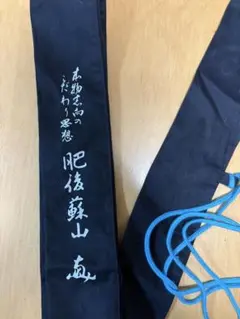 本物志向の
こだわり思想
肥後蘇山